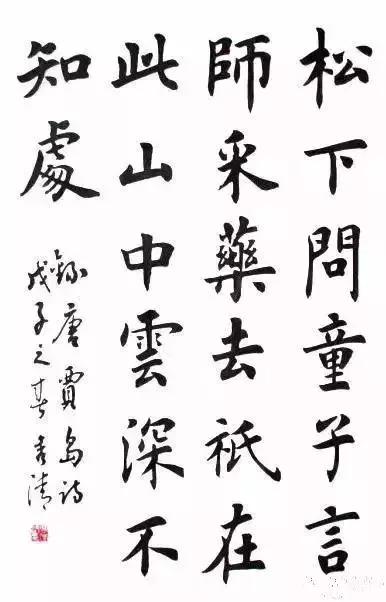 松下問童子言
師采藥去祇在
此山中雲深不
知處
錄唐賈島詩
戊子之春清